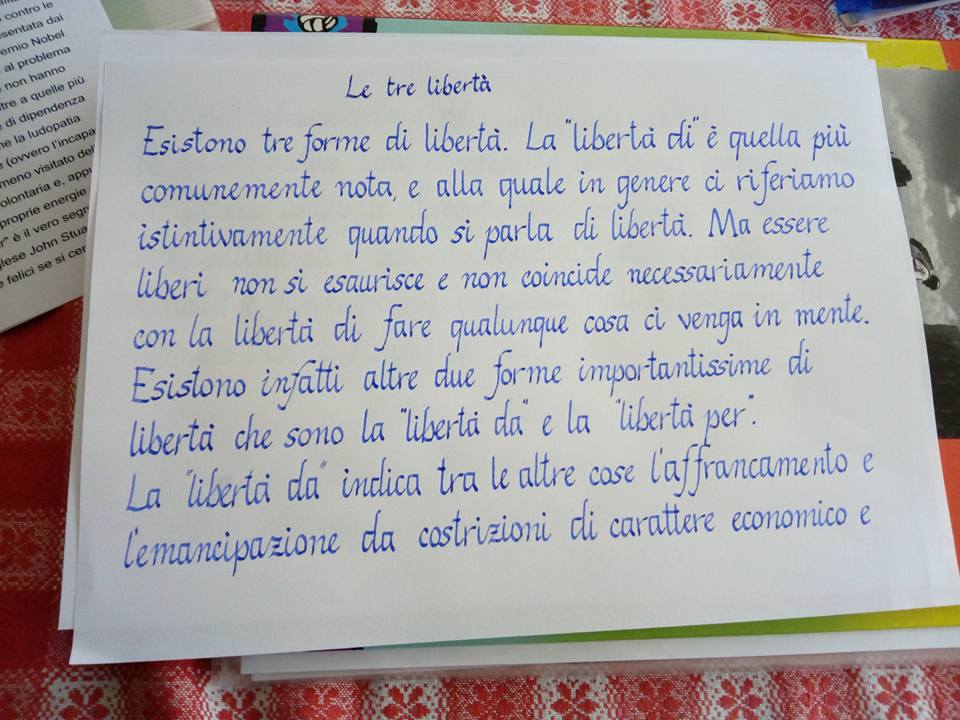 contro le
esentata dai
remio Nobel
al problema
non hanno
tre a quelle più
di dipendenza
la ludopatia
(ovvero l'incapa
meno visitato del
olontaria e, appu
proprie energie
è il vero segr
glese John Stua
felici se si cer
Le tre libertà
Esistono tre forme di libertà. La "libertà di" è quella più
comunemente nota, e alla quale in genere ci riferiamo
istintivamente quando si parla di libertà. Ma essere
liberi non si esaurisce e non coincide necessariamente
con la libertà di fare qualunque cosa ci venga in mente.
Esistono infatti altre due forme importantissime di
libertà che sono la "libertà da" e la "libertà per".
La "libertà da" indica tra le altre cose l'affrancamento e
l'emancipazione da costrizioni di carattere economico e